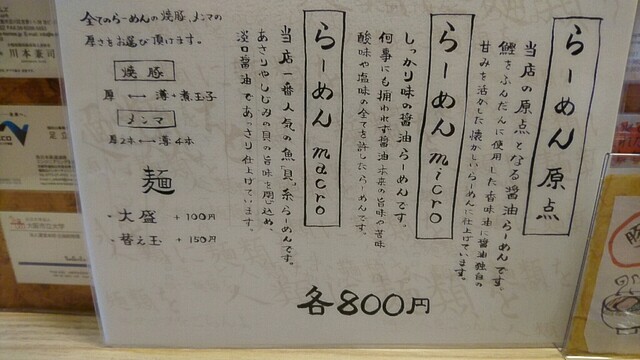 らーめん 原点
当店の原点となる醤油らーめんです。
鰹をふんだんに使用した香味油に醤油独自の
甘みを活かした懐かしいらーめんに仕上げています。
らーめん micro
しっかり味の醤油らーめんです。
何事にも拘われず醤油本来の旨味の苦味
酸味や塩味の全てを許したらーめんです。
らーめん macro
当店一番人気の魚貝系らーめんです。
あさりやしじみの貝の旨味を閉じ込め、
淡口醤油であっさり仕上げています。
全てのらーめんの焼豚、メンマの
厚さをお選び頂けます。
焼豚
厚 ⟷ 薄+煮玉子
メンマ
厚2本⟷薄4本
麺
・大盛 +100円
・替え玉 +150円
各800円
川本兼司
大阪市立大学